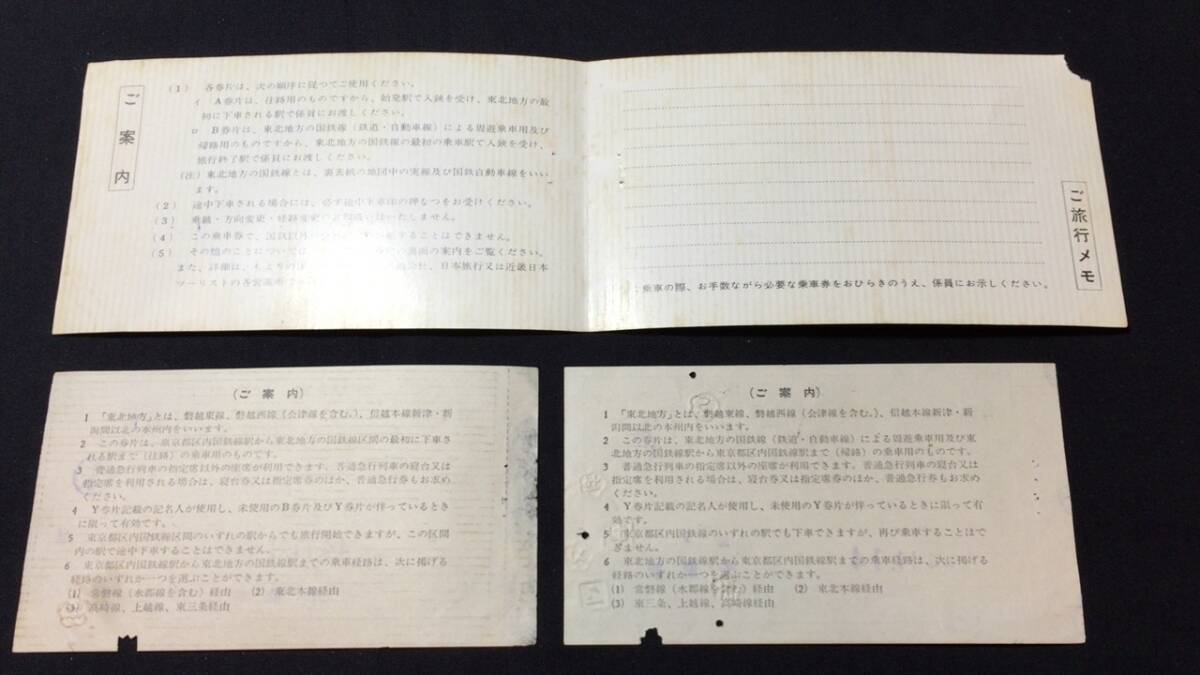 ご案内
(1) 各券片は、次の順序に従つてご使用ください。
イ A券片は、往路用のものですから、始発駅で入鋏を受け、東北地方の最
初に下車される駅で係員にお渡しください。
ロ B券片は、東北地方の国鉄線（鉄道・自動車線）による周遊乗車用及び
帰路用のものですから、東北地方の国鉄線の最初の乗車駅で入鋏を受け、
旅行終了駅で係員にお渡しください。
(注) 東北地方の国鉄線とは、裏表紙の地図中の実線及び国鉄自動車線をいい
ます。
(2) 途中下車される場合には、必ず途中下車印の押なつをお受けください。
(3) 乗越・方向変更・経路変更のお取扱いはいたしません。
(4) この乗車券で、国鉄以外の することはできません。
(5) その他のことについては の裏面の案内をご覧ください。
また、詳細は、もよりの 日本旅行又は近畿日本
ツーリストの各営業所
ご旅行メモ
乗車の際、お手数ながら必要な乗車券をおひらきのうえ、係員にお示しください。
（ご案内）
1 「東北地方」とは、磐越東線、磐越西線（会津線を含む。）、信越本線新津・新
潟間以北の本州内をいいます。
2 この券片は、東京都区内国鉄線駅から東北地方の国鉄線区間の最初に下車さ
れる駅まで（往路）の乗車用のものです。
3 普通急行列車の指定席以外の座席が利用できます。普通急行列車の寝台又は
指定席を利用される場合は、寝台券又は指定席券のほか、普通急行券もお求め
ください。
4 Y券片記載の記名人が使用し、未使用のB券片及びY券片が伴っているとき
に限って有効です。
5 東京都区内国鉄線区間のいずれの駅からでも旅行開始できますが、この区間
内の駅で途中下車することはできません。
6 東京都区内国鉄線駅から東北地方の国鉄線駅までの乗車経路は、次に掲げる
経路のいずれか一つを選ぶことができます。
(1) 常磐線（水郡線を含む）経由 (2) 東北本線経由
(3) 高崎線、上越線、東三条経由
（ご案内）
1 「東北地方」とは、磐越東線、磐越西線（会津線を含む。）、信越本線新津・新
潟間以北の本州内をいいます。
2 この券片は、東北地方の国鉄線（鉄道・自動車線）による周遊乗車用及び東
北地方の国鉄線駅から東京都区内国鉄線駅まで（帰路）の乗車用のものです。
3 普通急行列車の指定席以外の座席が利用できます。普通急行列車の寝台又は
指定席を利用される場合は、寝台券又は指定席券のほか、普通急行券もお求め
ください。
4 Y券片記載の記名人が使用し、未使用のY券片が伴っているときに限って有
効です。
5 東京都区内国鉄線のいずれの駅でも下車できますが、再び乗車することはで
きません。
6 東北地方の国鉄線駅から東京都区内国鉄線駅までの乗車経路は、次に掲げる
経路のいずれか一つを選ぶことができます。
(1) 常磐線（水郡線を含む）経由 (2) 東北本線経由
(3) 東三条、上越線、高崎線経由